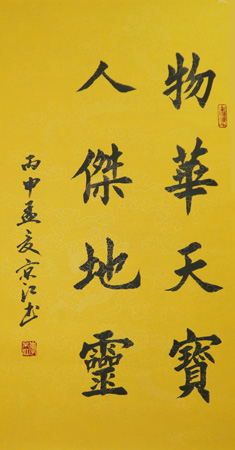 物華天寶
人傑地靈
丙申孟夏京江書